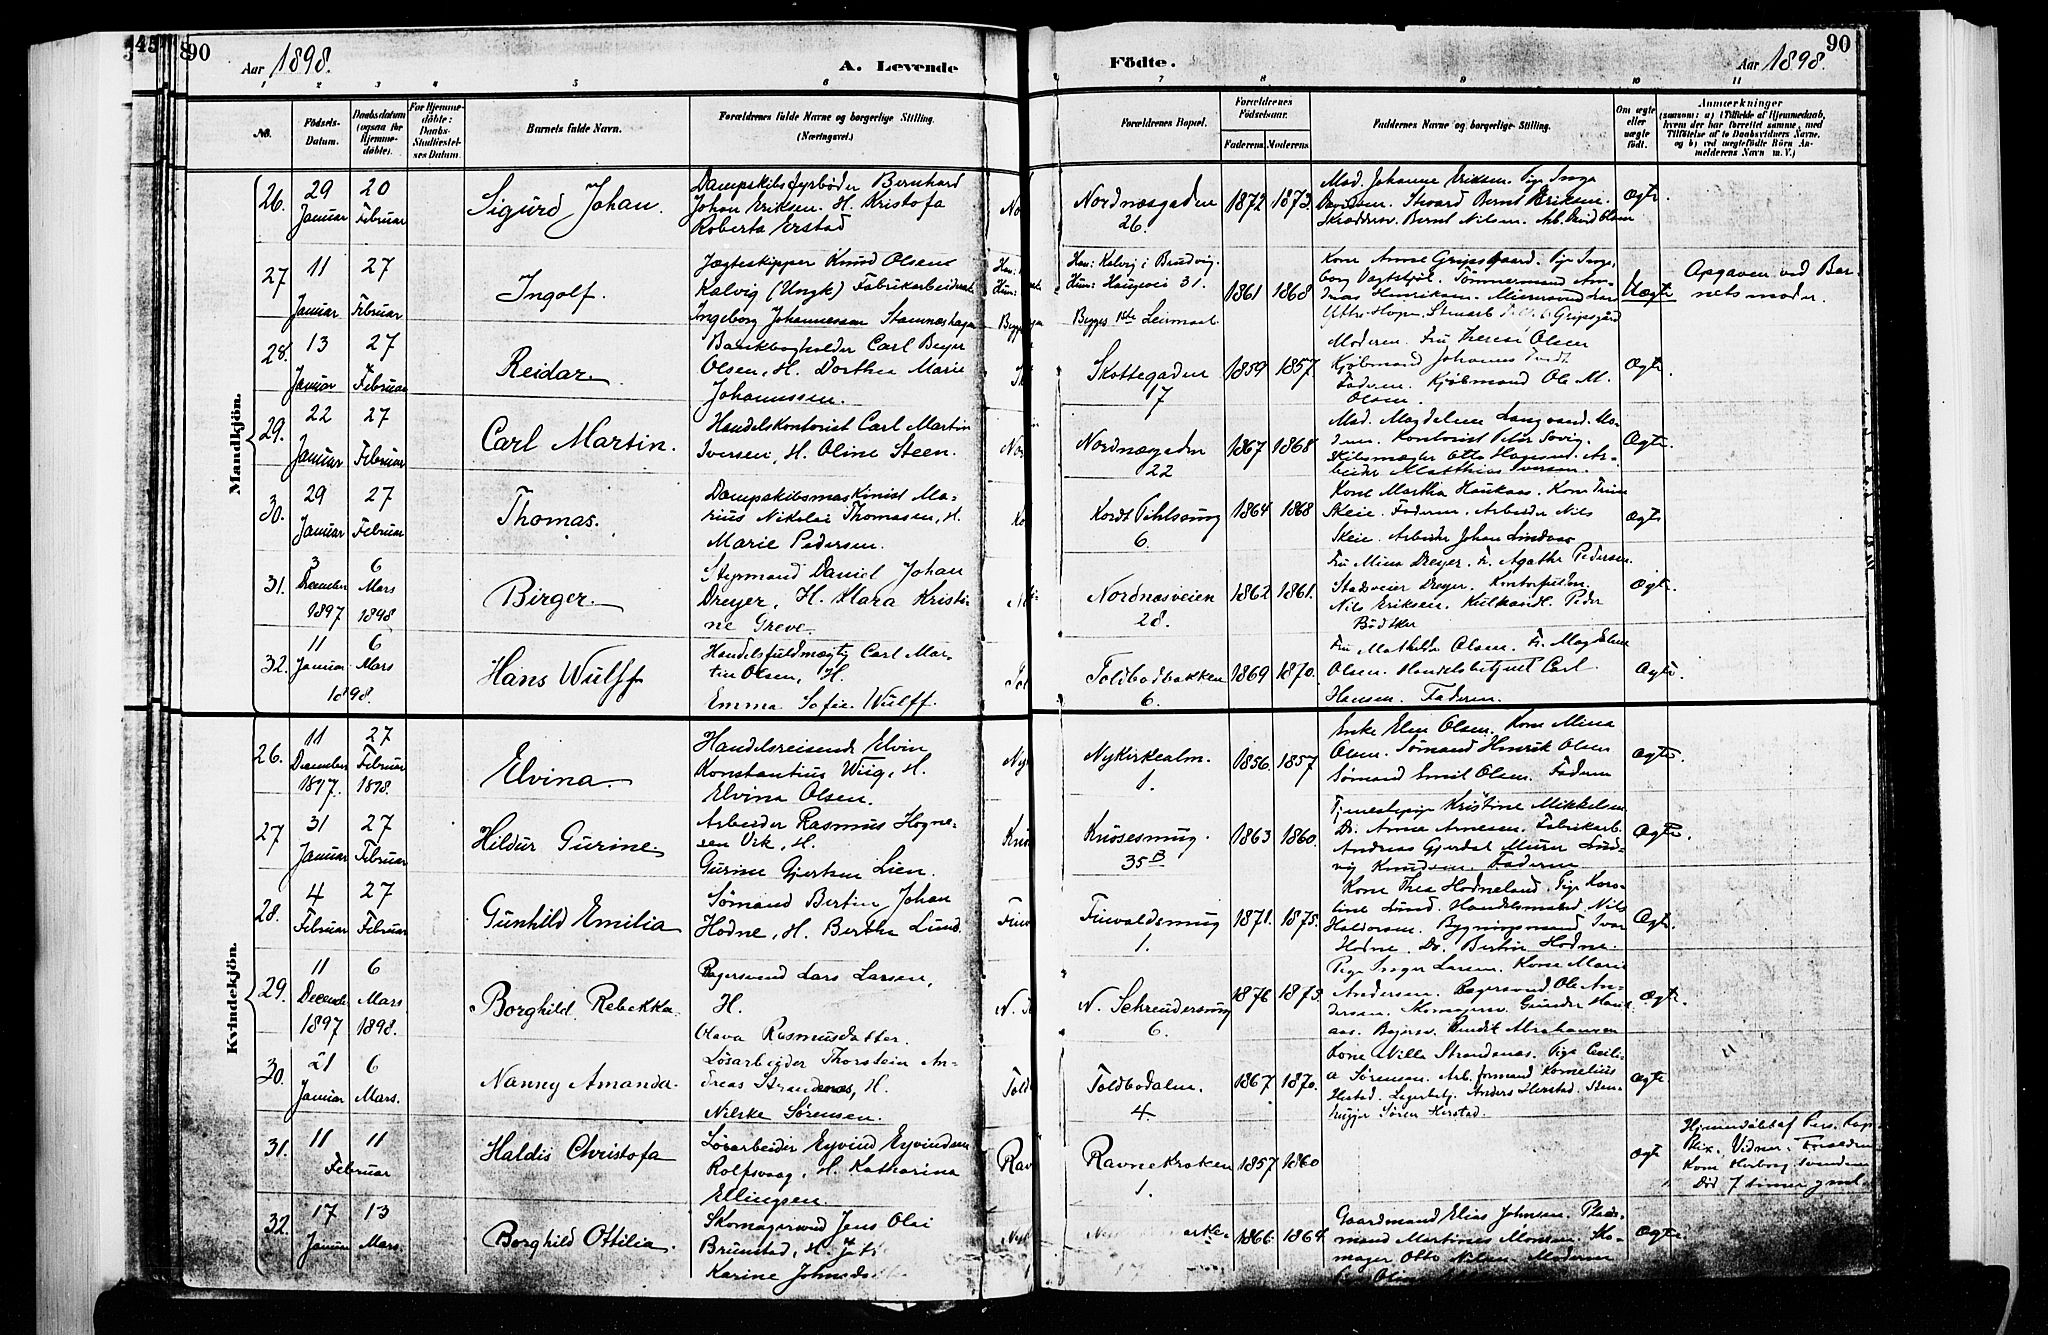 90
Aar 1898.
A. Levende
Födte.
Aar 1898.
90
1 2 3 4 5 6 7 8 9 10 11
No.
Födsels-
Datum.
Daabsdatum
(ogsaa for
Hjemme-
döbte).
For Hjemme-
döbte:
Daabs-
Stadfæstel-
ses Datum.
Barnets fulde Navn.
Forældrenes fulde Navne og borgerlige Stilling.
(Næringsvei.)
Forældrenes Bopæl.
Forældrenes
Födselsaar.
Faderens.
Moderens.
Faddernes Navne og borgerlige Stilling.
Om ægte
eller
uægte
født.
Anmærkninger
(saasom: a) i Tilfælde af Hjemmedaab,
hvem der har forrettet samme, med
Tilföielse af to Daabsvidners Navne,
og b) ved uægtefödte Börn An-
melderens Navn m. V.)
Mandkjön.
26. 29 Januar 20 Februar
Sigurd Johan.
Dampskibsfyrbøder Bernhard
Johan Eriksen. H. Kristofa
Roberta Erstad
Nordnæsgaden
26.
1872 1873.
Mad. Johanne Eriksen. Pige Inga
Davidsen. Stuard Bernt Eriksen.
Skræddersv. Bernt Nilsen. Arb.
Ægte.
27 11 Januar 27 Februar
Ingolf.
Jægteskipper Knud Olsen
Kalvig (Ungk) Fabrikarbeiderske
Ingeborg Johannessen Stamneshagen
Han: Kalvig i Bruvig.
Hun: Haugevei 31.
Begges 1ste Leiermaal
1861 1868
Kone Anne Gripsgaard. Pige Inge-
borg Vagtskjol. Tømmermand An-
dreas Henriksen.
Uægte
Opgaven ved Bar-
nets moder.
28. 13 Januar 27 Februar
Reidar.
Bankbogholder Carl Beyer
Olsen, H. Dorthea Marie
Johannessen.
Skottegaden
17
1859 1857.
Moderen. Fru Therese Olsen
Kjøbmand Johannes
Faderen. Kjøbmand Ole M.
Olsen.
Ægte.
29. 22 Januar 27 Februar
Carl Martin.
Handelskontorist Carl Martin
Iversen, H. Oline Steen.
Nordnæsgaden
22
1867 1868
Mad. Magdelene Langvand. Mo-
deren. Kontorist Peter Sovig.
Skibsmægler Otto Ar-
beider Matthias Iversen.
Ægte.
30. 29 Januar 27 Februar
Thomas.
Dampskibsmaskinist Ma-
rius Nikolai Thomassen, H.
Marie Pedersen.
Kordt Pihlsmug
6.
1864 1868
Kone Martha Haukaas. Kone Trine
Skeie. Faderen. Arbeider Nils
Skeie. Arbeider Johan Lindaas
Ægte
31. 3 December 1897 6 Mars 1898
Birger.
Styrmand Daniel Johan
Dreyer, H. Klara Kristi-
ne Greve.
Nordnæsveien
28.
1862 1861.
Fru Mina Dreyer. Fr. Agathe Pedersen
Stadsveier Dreyer. Kontorfuldm.
Nils Eriksen. Kulhandl. Peder
Bødtker
Ægte.
32. 11 Januar 1898. 6 Mars
Hans Wulff
Handelsfuldmægtig Carl Mar-
tin Olsen, H.
Emma Sofie Wulff.
Toldbodbakken
6.
1869 1870.
Fru Mathilde Olsen. Fr. Magdalene
Olsen. Handelsbetjent Carl
Hansen. Faderen.
Ægte.
Kvindekjön.
26. 11 December 1897. 27 Februar 1898.
Elvina.
Handelsreisende Elvin
Konstantius Wiig, H.
Elvina Olsen.
Nykirkealm.
1.
1856. 1857
Enke Elen Olsen. Kone Mina
Olsen. Sømand Henrik Olsen
Sømand Emil Olsen. Faderen
Ægte.
27 31 Januar 27 Februar
Hildur Gurine
Arbeider Rasmus Hogne-
sen Vik, H.
Gurine Gjertsen Lien.
Knøsesmug.
35 B
1863 1860.
Tjenestepige Kristine Mikkelsen
Do. Anna Arnesen. Fabrikarb.
Andreas Gjerdal Murer Lud-
vig Knudsen. Faderen
Ægte.
28. 4 Februar 27 Februar
Gunhild Emilia
Sømand Bertin Johan
Hodne, H. Berthe Lund.
Finvaldsmug
1.
1871. 1875.
Kone Thea Hodneland. Pige Karo-
line Lund. Handelsmand Nils
Haldorsen. Bygningsmand Ivar
Hodne. Do. Bertin Hodne.
Ægte.
29. 11 December 1897 6 Mars 1898.
Borghild Rebekka.
Bagersvend Lars Larsen,
H.
Olava Rasmusdatter.
N. Schreudersmug
6.
1876 1873.
Pige Inger Larsen. Kone Marie
Andersen. Bagersvend Ole An-
dersen. Skomagersv. Gunder
Bagersv. Abrahamsen
Ægte.
30. 21 Januar 6 Mars.
Nanny Amanda.
Løsarbeider Thorstein An-
dreas Strandenæs, H.
Nilske Sørensen.
Toldbodalm.
4
1867 1870.
Kone Villa Strandenæs. Pige Cecili-
a Sørensen. Arb.formand Kornelius
Herstad. Lagerbetj. Anders Herstad. Sten-
hugger Søren Herstad.
Ægte.
31. 11 11 Februar
Haldis Christofa
Løsarbeider Eyvind Eyvindsen
Rolfsvaag, H. Katharina
Ellingsen.
Ravnekroken
1.
1857 1860
Ægte
Hjemmedøbt af Pers. Kap.
Vidner. Forældrene
Kone Herborg
Død 7 timer gml.
32. 17 Januar 13 Mars.
Borghild Ottilia.
Skomagersvend Jens Olai
Brunstad, H.
Karine Johnsd
17
1866. 1864.
Gaardmand Elias Johnsen. Plads-
mand Martinus Monsen. Sko-
mager Otto Nilsen. Moderen
Ægte.